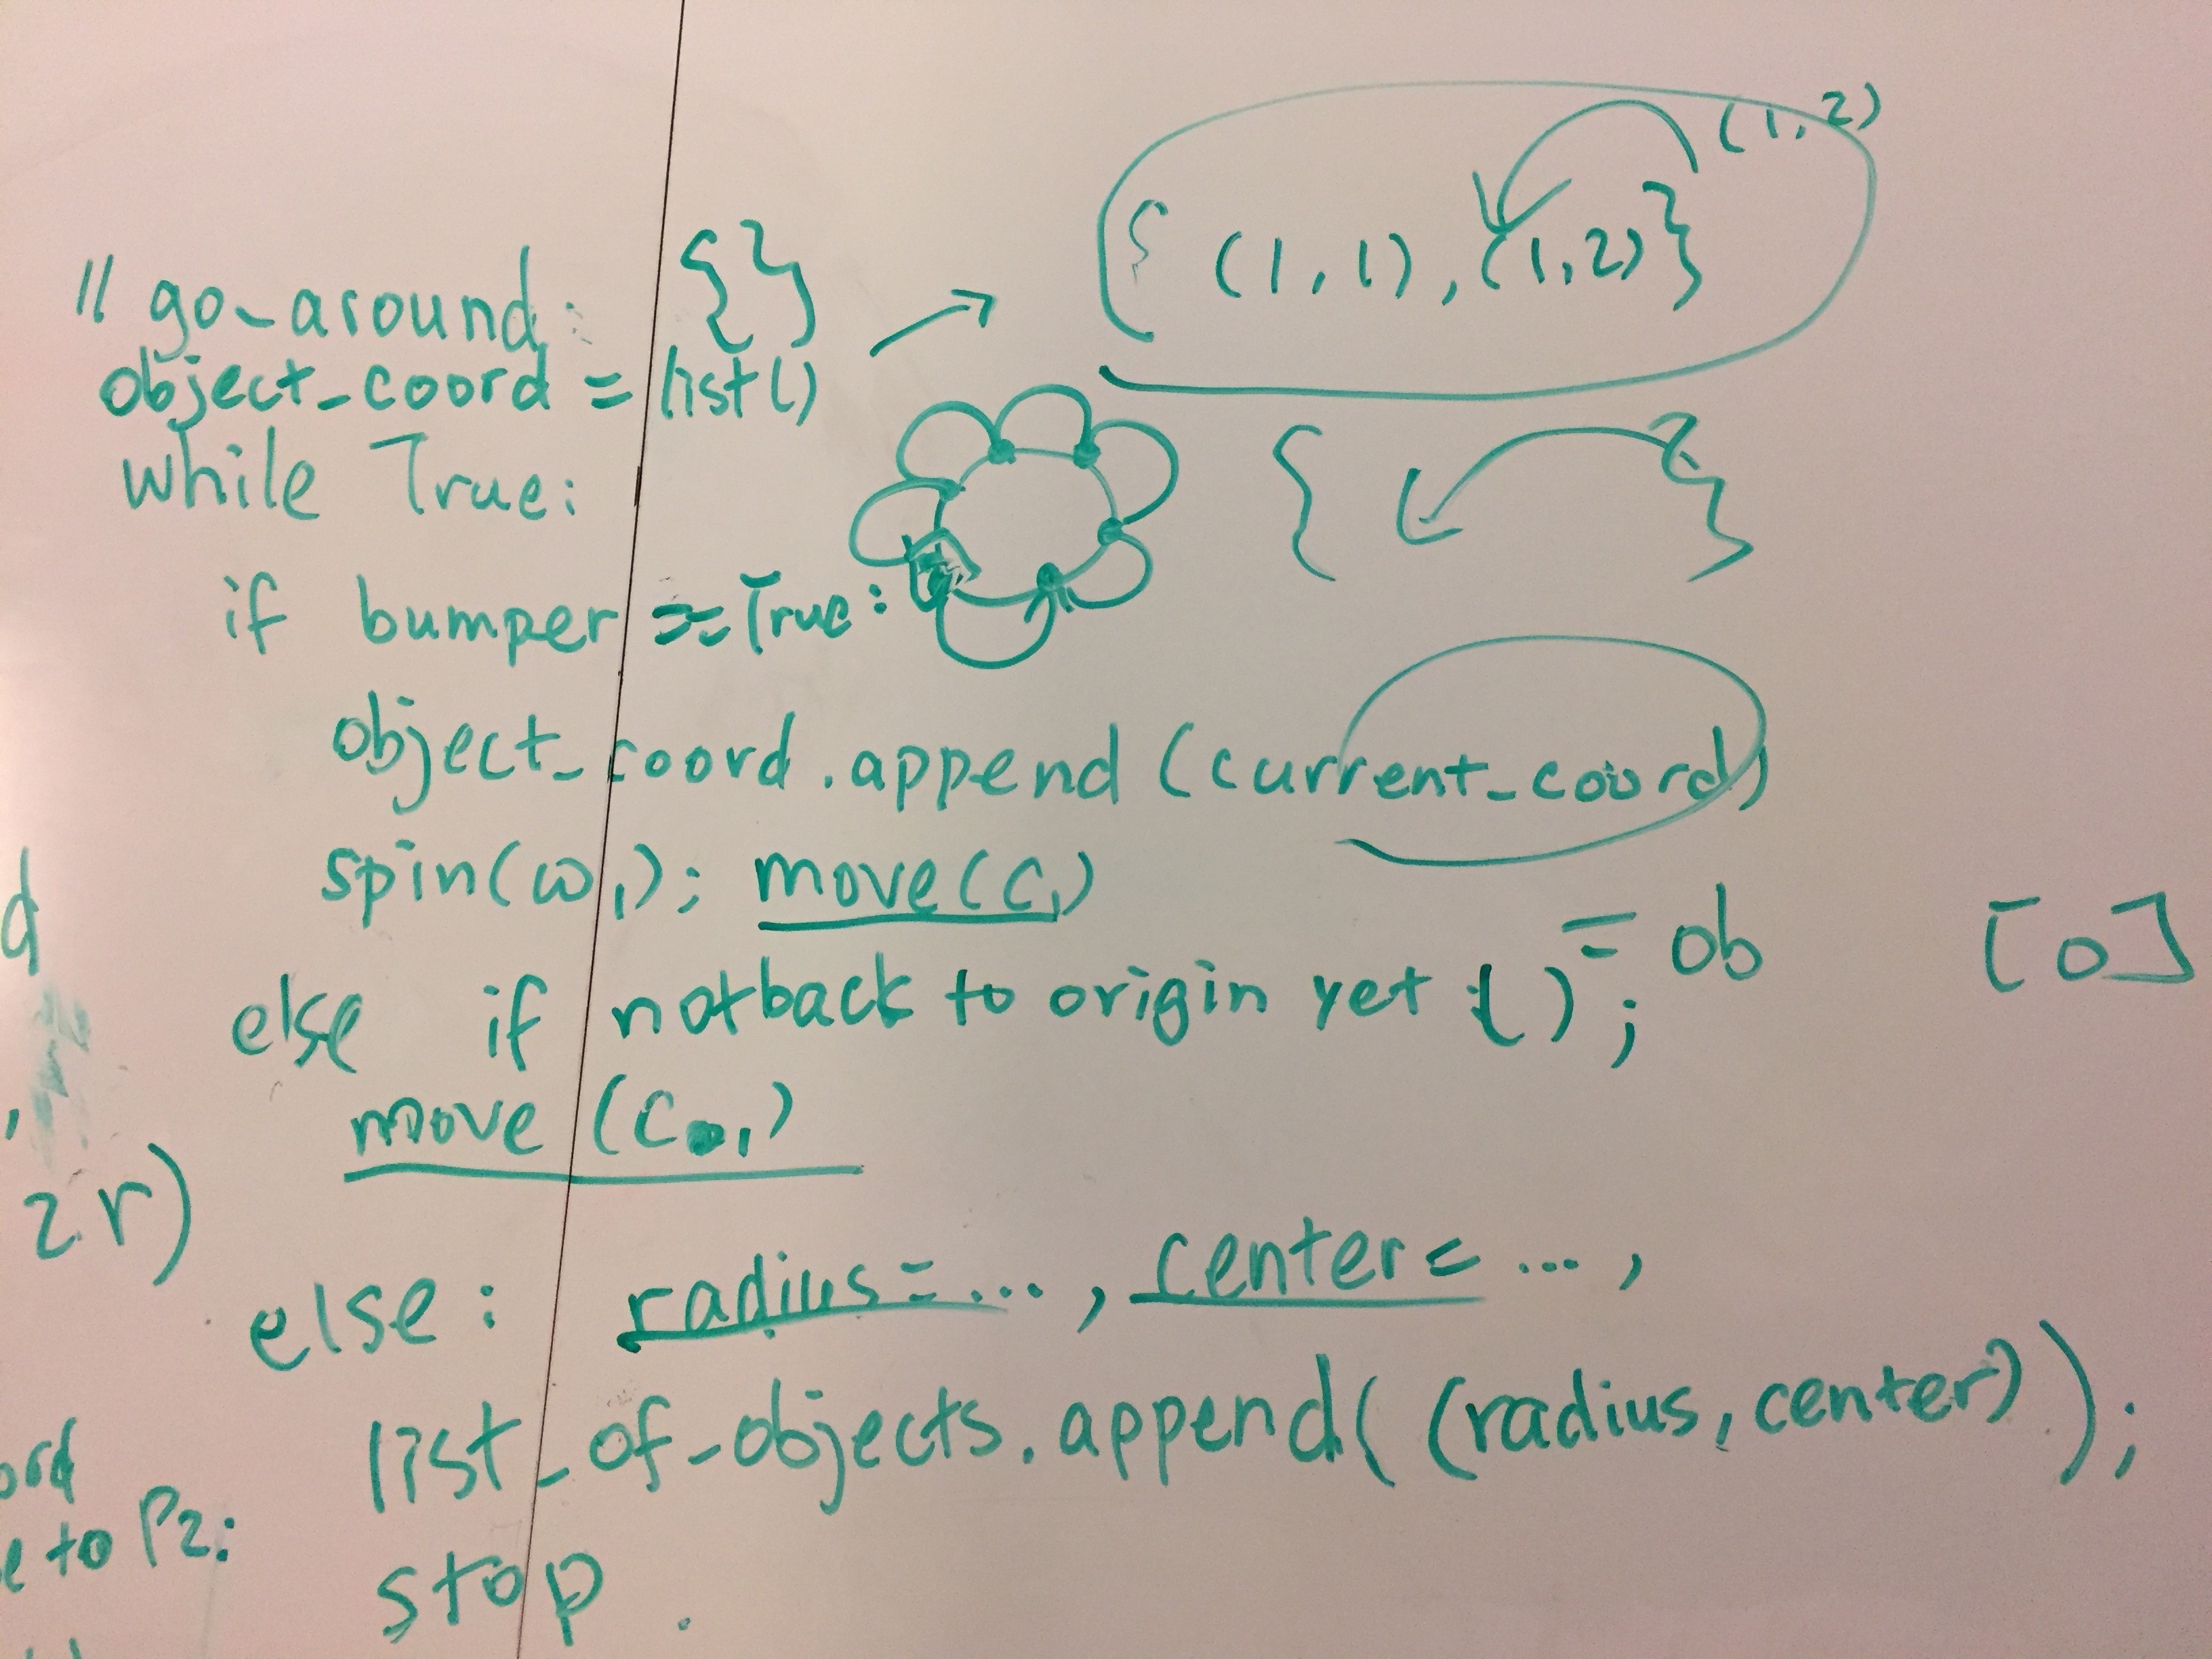 (1,2)
{ (1,1), (1,2) }
// go_around: { }
object_coord = list()
{ }
while True:
if bumper == True:
object_coord.append(current_coord)
spin(ω₁); move(C₁)
= ob [0]
else if not back to origin yet ( );
move (C₁)
else: radius = ..., center = ...,
list_of_objects.append((radius, center));
stop.
d
,
2r)
ord
e to P2: